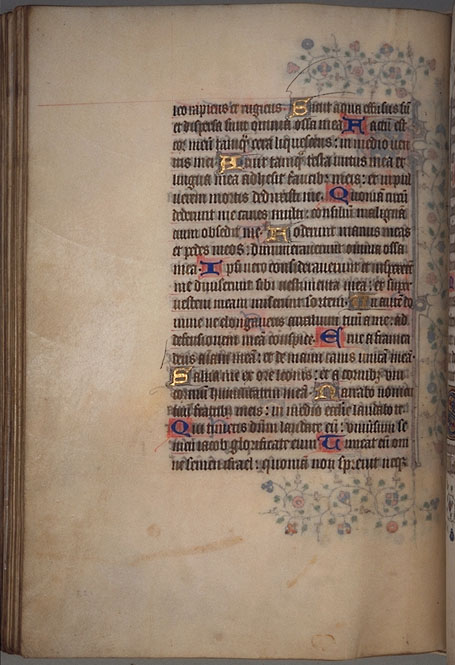 leo rapiens et rugiens Sicut aqua effusus sũ
et dispersa sunt omnia ossa mea Factũ est
cor meũ tamqͣ cera liquescens: in medio ven
tris mei Aruit tamqͣ testa virtus mea et
lingua mea adhesit faucibꝫ meis: et in pul
verem mortis deduxisti me Quoniã circũ
dederunt me canes multi: consiliũ malignã
cium obsedit me Foderunt manus meas
et pedes meos: dinumeraverunt omnia ossa
mea Ipsi vero consideraverunt et inspexerũt
me diviserunt sibi vestimenta mea: et super
vestem meam miserunt sortem Tu autẽ do
mine ne elongaveris auxilium tuũ a me: ad
defensionem meã conspice Erue a framea
deus aĩam meã: et de manu canis unicã meã
Salva me ex ore leonis: et a cornibꝫ uni
cornuũ humilitatem meã Narrabo nomen
tuũ fratribꝫ meis: in medio ecclie laudabo te
Qui timetis dñm laudate eũ: universum se
men iacob glorificate eum Timeat eũ om
ne semen israel: quoniã non sprevit neqꝫ